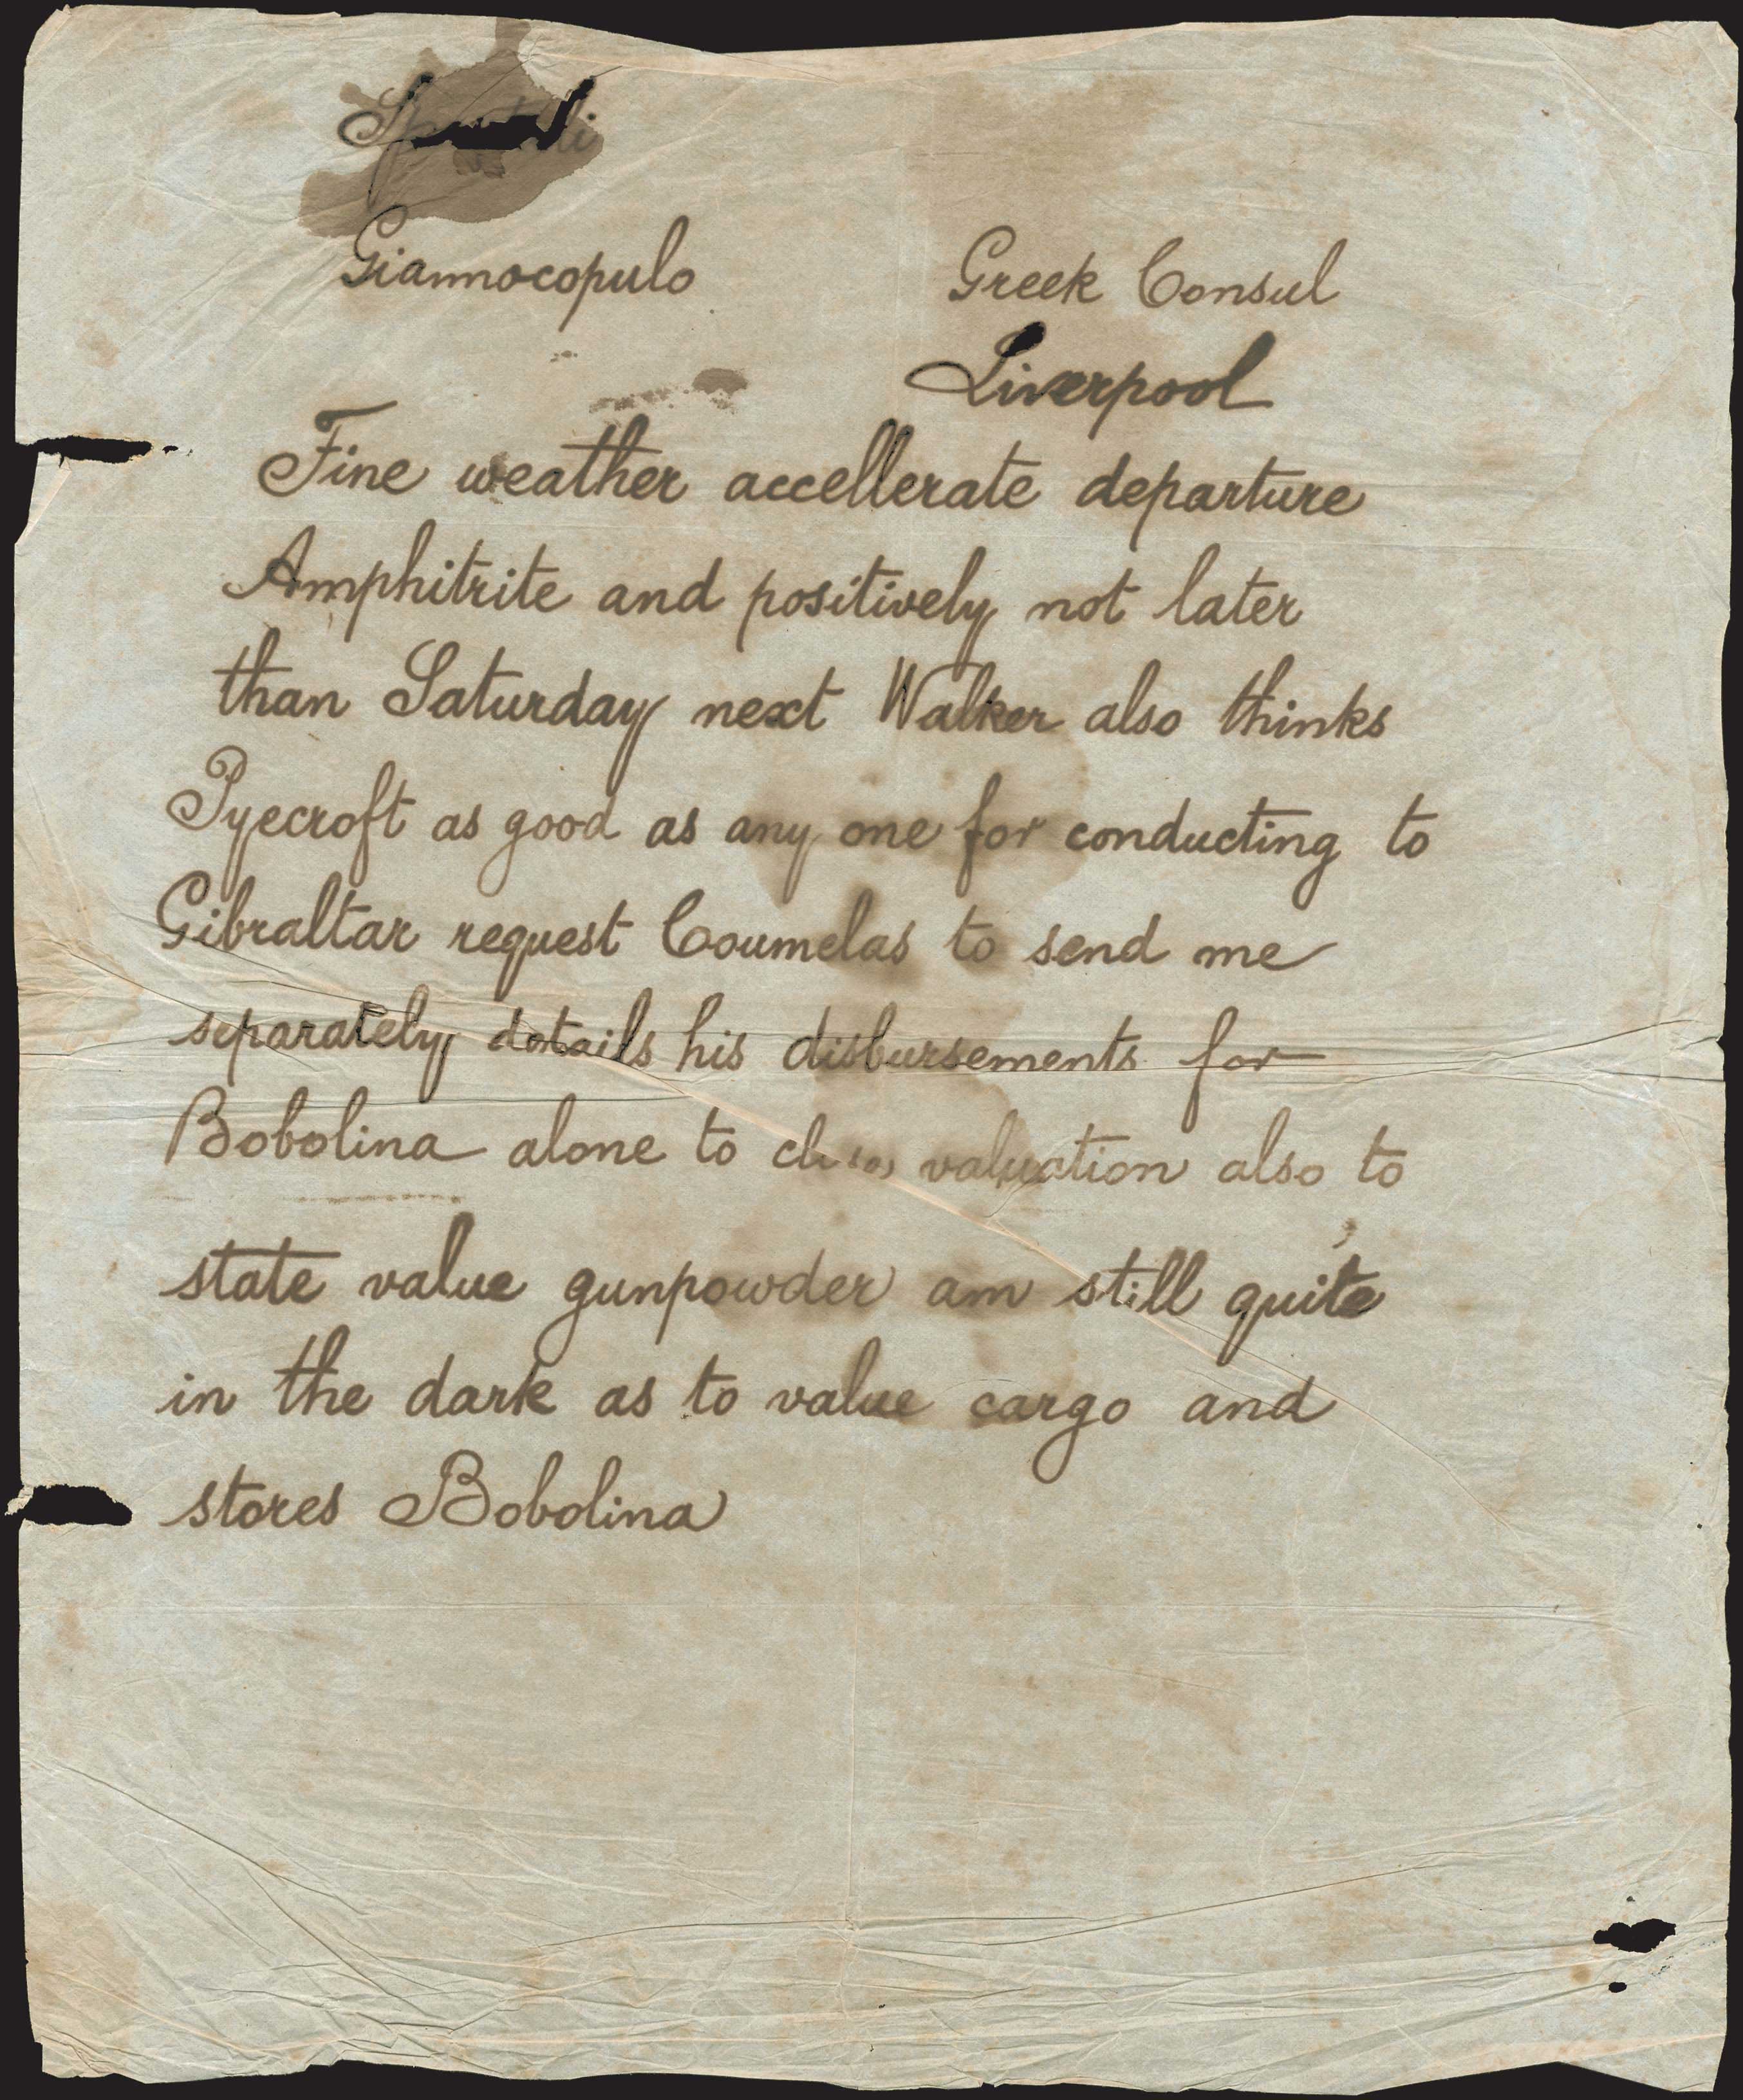 Giannocopulo Greek Consul
Liverpool
Fine weather accellerate departure
Amphitrite and positively not later
than Saturday next Walker also thinks
Pyecroft as good as any one for conducting to
Gibraltar request Coumelas to send me
separately details his disbursements for
Bobolina alone to valuation also to
state value gunpowder am still quite
in the dark as to value cargo and
stores Bobolina